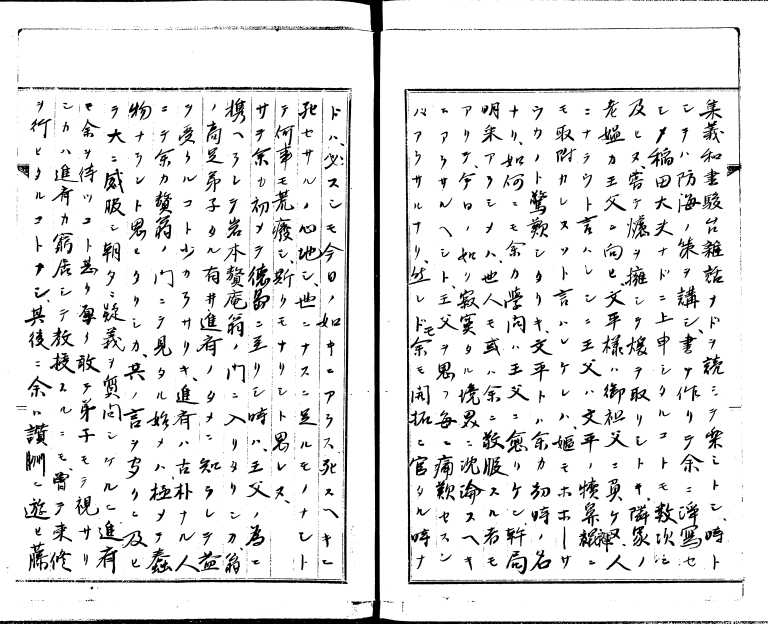 集義和書駿台雑話ナドヲ読ミテ楽シトシ、時ト
シテハ防海ノ策ヲ講シ書ヲ作リテ余ニ浄写セ
シメ稲田大丈ナドニ上申シタルコトモ数次ニ
及ヒヌ、嘗テ爐ヲ擁シテ煖ヲ取リシトキ、隣家ノ
老媼カ王父ニ向ヒ文平様ハ御祖父ニ員ケヌ人
ニナラウト言ハレシニ王父ハ文平ノ犢鼻褌ニ
モ取附カレヌソト言ハレケレハ、媼モホホーサ
ウカノト驚歎シタリキ、文平トハ余カ幼時ノ名
ナリ、如何ニモ余カ学問ハ王父ニ愈リケン幹局
明朱アラシメハ、世人モ或ハ余ニ敬服スル者モ
アリテ今日ノ如り寂寞タル境界ニ沈淪スヘキ
ニアラサルヘシト、王父ヲ思フ毎ニ痛歎セスン
ハアラサルナリ、然レドモ余モ開拓ニ官タル時ナ
ドハ、必スシモ今日ノ如キニアラス、死スヘキニ
死セサルノ心地シ、世ニナスニ足ルモノナシト
テ何事モ荒癈シ、斯リモナリシト思レヌ、
サテ余カ初メテ徳島ニ至リシ時ハ、王父ノ為ニ
携ヘラレテ岩本贅庵翁ノ門ニ入リタリシカ、翁
ノ高足弟子タル有井進斎ノタメニ知ラレテ益
ヲ受クルコト少カラサリキ、進斎ハ古朴ナル人
ニテ余カ贅翁ノ門ニテ見タル始メハ、極メテ蠢
物ナラント思ヒタリシカ、其ノ言ヲ安リニ及ヒ
テ大ニ威服シ朝夕ニ疑義ヲ質問シケルニ進斎
モ余ヲ待ツコト甚タ厚ク敢テ弟子モテ視サリ
シカハ進斎カ窮居シテ教授スルニモ、曽テ束修
ヲ行ヒタルコトナシ、其後ニ余ハ讃州ニ遊ヒ藤